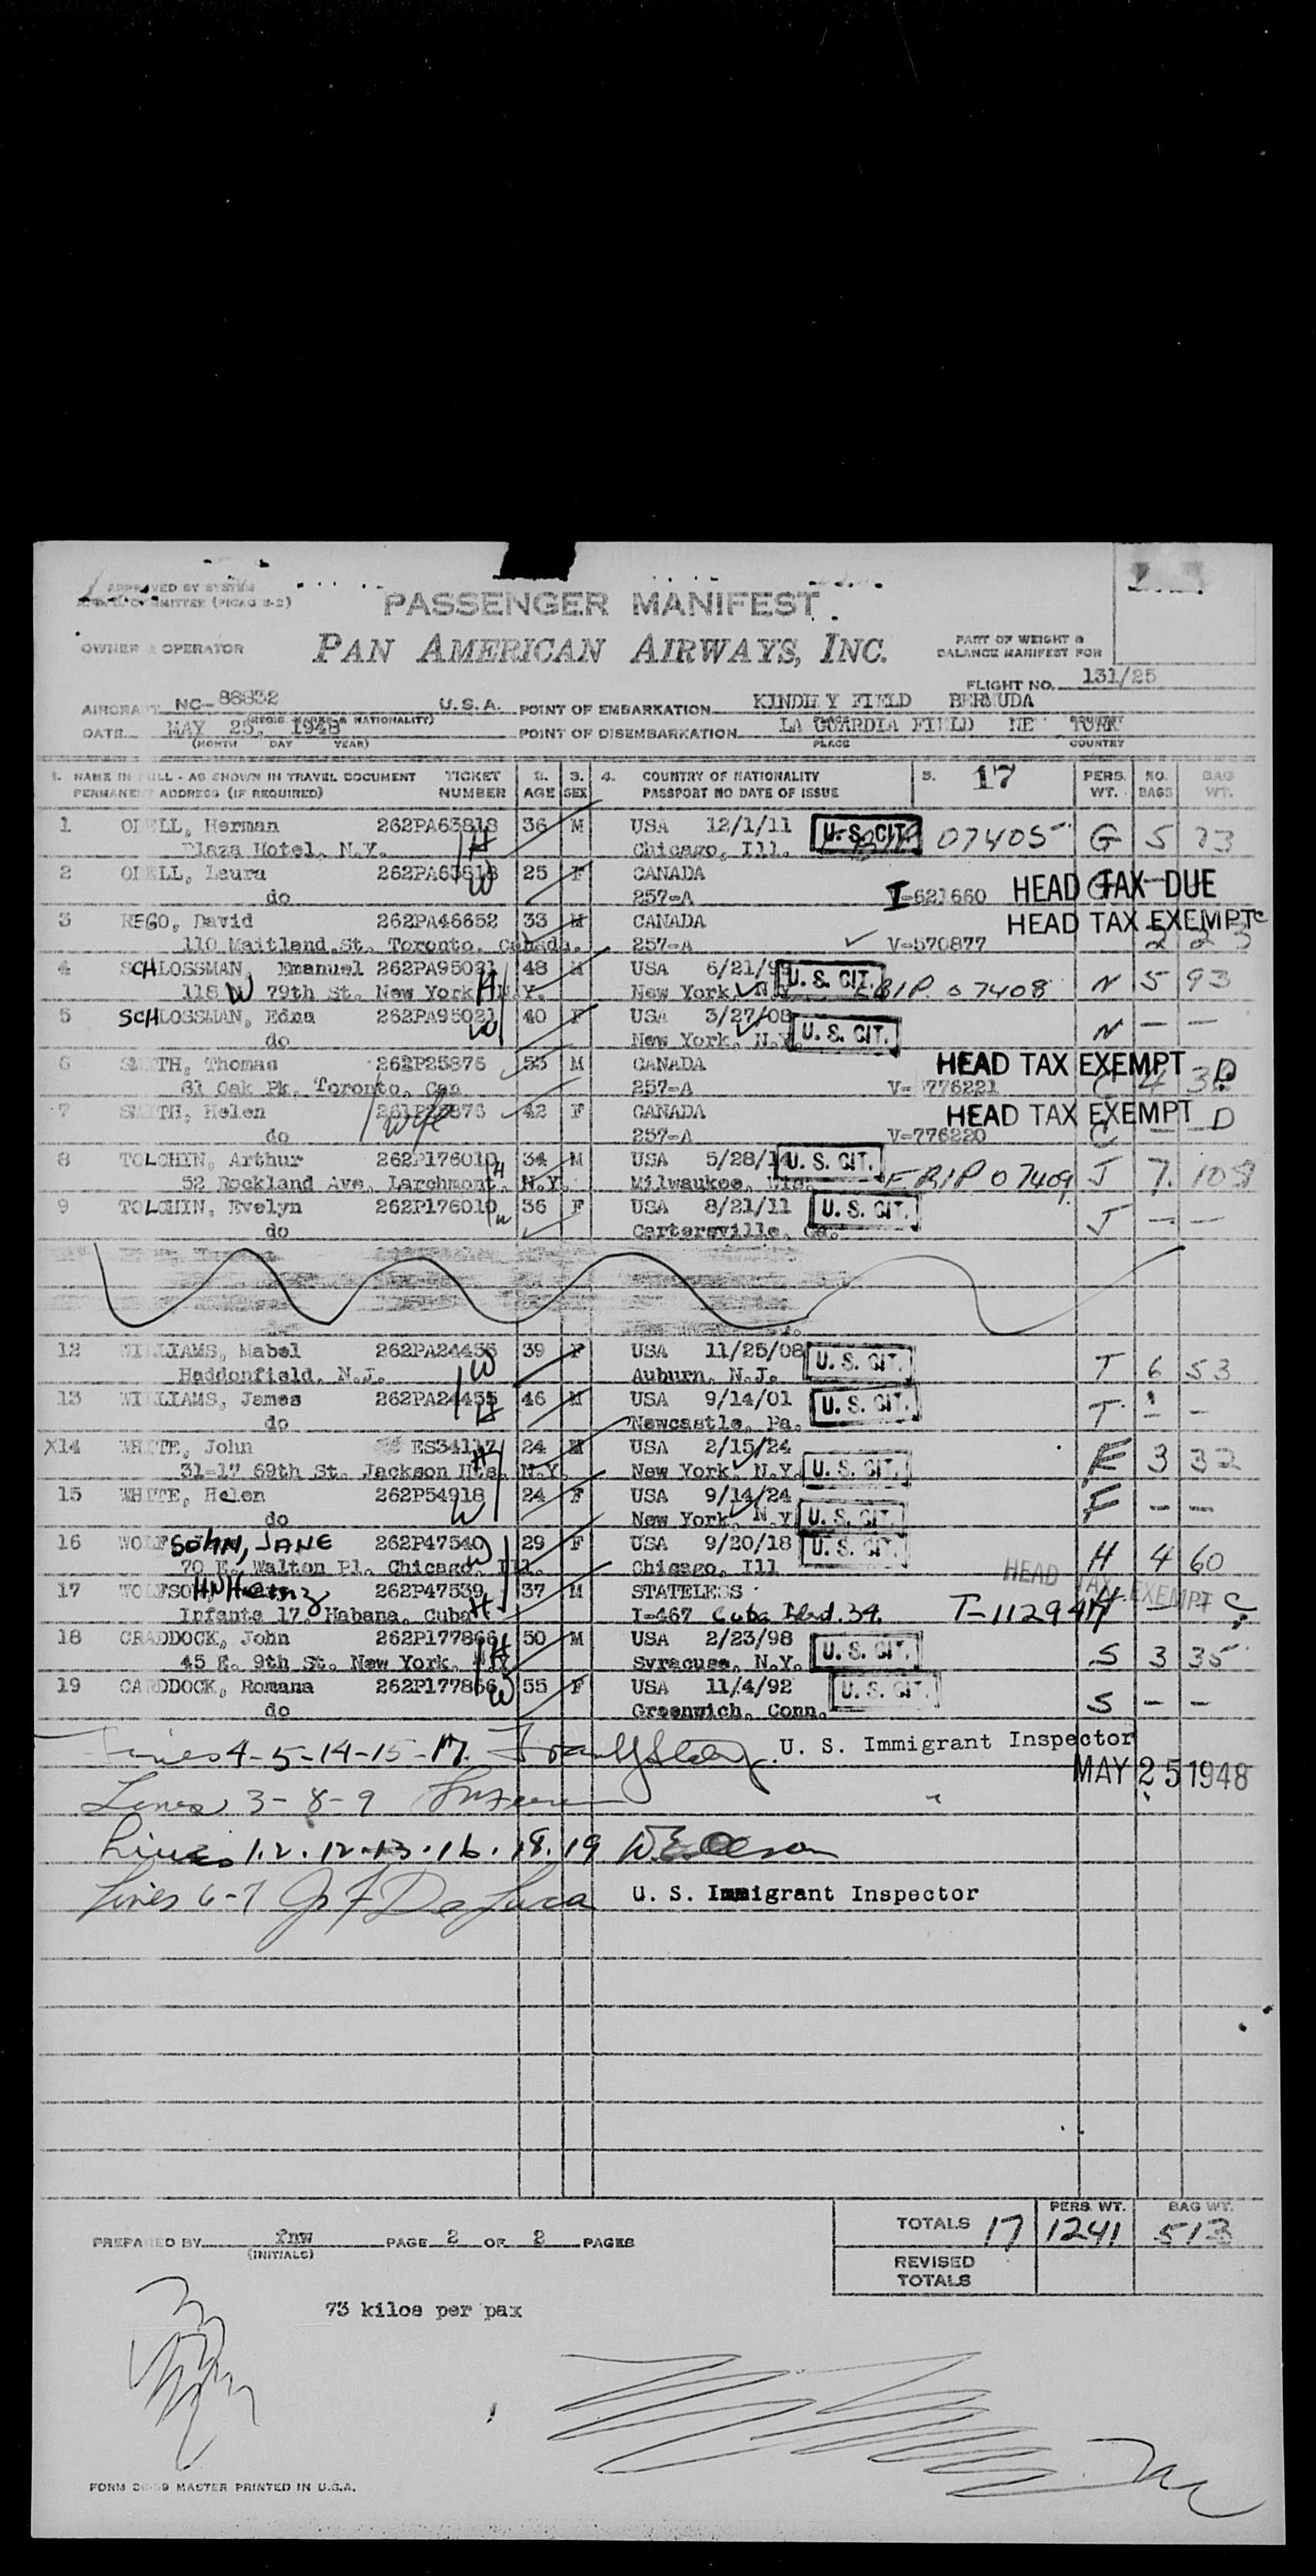 APPROVED BY SYSTEM
PASSENGER MANIFEST
OWNER & OPERATOR
PAN AMERICAN AIRWAYS, INC.
PART OF WEIGHT &
BALANCE MANIFEST FOR
FLIGHT NO. 131/25
AIRCRAFT NC-88832 U.S.A. POINT OF EMBARKATION KINDLEY FIELD BERMUDA
DATE MAY 25, 1948 POINT OF DISEMBARKATION LA GUARDIA FIELD NEW YORK
(MONTH DAY YEAR) PLACE COUNTRY
1. NAME IN FULL - AS SHOWN IN TRAVEL DOCUMENT TICKET 2. 3. 4. COUNTRY OF NATIONALITY 5. 17 PERS. NO. BAG
PERMANENT ADDRESS (IF REQUIRED) NUMBER AGE SEX PASSPORT NO DATE OF ISSUE WT. BAGS WT.
1 ODELL, Herman 262PA63818 36 M USA 12/1/11 U.S. CIT. 07405 G 5 73
Plaza Hotel, N.Y. H Chicago, Ill.
2 ODELL, Laura 262PA63818 W 25 F CANADA HEAD TAX DUE
do 257-A I-621660
3 REGO, David 262PA46652 33 M CANADA HEAD TAX EXEMPT C
110 Maitland St. Toronto, Canada. 257-A V-570877 2 23
4 SCHLOSSMAN, Emanuel 262PA95021 48 M USA 6/21/99 U. S. CIT. N 5 93
118 W 79th St. New York, N.Y. H New York, N.Y. FRIP 07408
5 SCHLOSSMAN, Edna 262PA95021 W 40 F USA 3/27/08 U. S. CIT. N — —
do New York, N.Y.
6 SMITH, Thomas 262P25876 53 M CANADA HEAD TAX EXEMPT D
81 Oak Pk. Toronto, Can 257-A V-776221 C 4 38
7 SMITH, Helen wife 42 F CANADA HEAD TAX EXEMPT D
do 257-A V-776220 C — —
8 TOLCHIN, Arthur 262P176010 H 34 M USA 5/28/14 U. S. CIT. FRIP 07409 J 7 109
52 Rockland Ave. Larchmont, N.Y. Milwaukee, Wis.
9 TOLCHIN, Evelyn 262P176010 W 36 F USA 8/21/11 U. S. CIT. J — —
do Cartersville, Ga.
12 WILLIAMS, Mabel 262PA24455 W 39 F USA 11/25/08 U. S. CIT. T 6 53
Haddonfield, N.J. Auburn, N.J.
13 WILLIAMS, James 262PA24455 H 46 M USA 9/14/01 U. S. CIT. T — —
do Newcastle, Pa.
X14 WHITE, John ES34117 H 24 M USA 2/15/24 F 3 32
31-17 69th St. Jackson Hts. N.Y. New York, N.Y. U. S. CIT.
15 WHITE, Helen 262P54918 W 24 F USA 9/14/24 F — —
do New York, N.Y. U. S. CIT.
16 WOLFSOHN, JANE 262P47540 W 29 F USA 9/20/18 U. S. CIT. H 4 60
70 E. Walton Pl. Chicago, Ill. Chicago, Ill
17 WOLFSOHN Heinz 262P47539 H 37 M STATELESS HEAD TAX EXEMPT C
Infanta 17, Habana, Cuba I-467 T-112944 H
18 CRADDOCK, John 262P177866 H 50 M USA 2/23/98 U. S. CIT. S 3 35
45 E. 9th St. New York, N.Y. Syracuse, N.Y.
19 CARDDOCK, Romana 262P177866 W 55 F USA 11/4/92 U. S. CIT. S — —
do Greenwich, Conn.
Lines 4-5-14-15-17. U. S. Immigrant Inspector
MAY 25 1948
Lines 3-8-9 "
Lines 1.2.12.13.16.18.19 W.E. Olson
Lines 6-7 J F DeLuca U. S. Immigrant Inspector
PERS. WT. BAG WT.
TOTALS 17 1241 513
PREPARED BY fnw PAGE 2 OF 2 PAGES
(INITIALS)
REVISED
TOTALS
73 kilos per pax
MASTER PRINTED IN U.S.A.